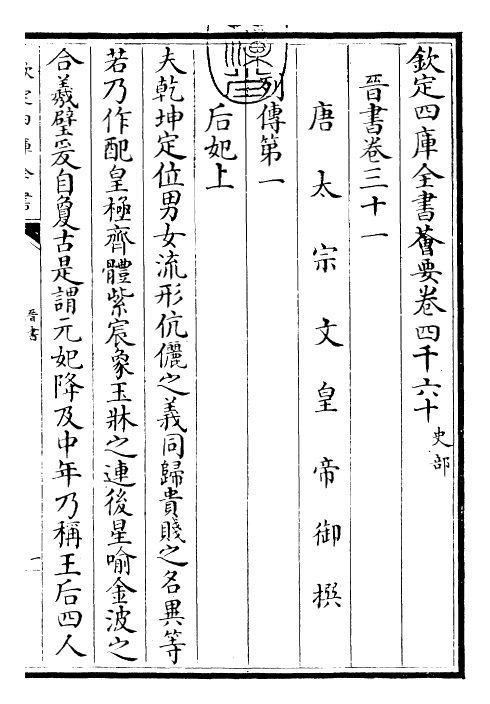 欽定四庫全書薈要卷四千六十 史部
晉書卷三十一
唐太宗文皇帝御撰
列傳第一
后妃上
夫乾坤定位男女流形伉儷之義同歸貴賤之名異等
若乃作配皇極齊體紫宸象玉牀之連後星喻金波之
合羲璧爰自夐古是謂元妃降及中年乃稱王后四人
欽定四庫全書
晉書
一